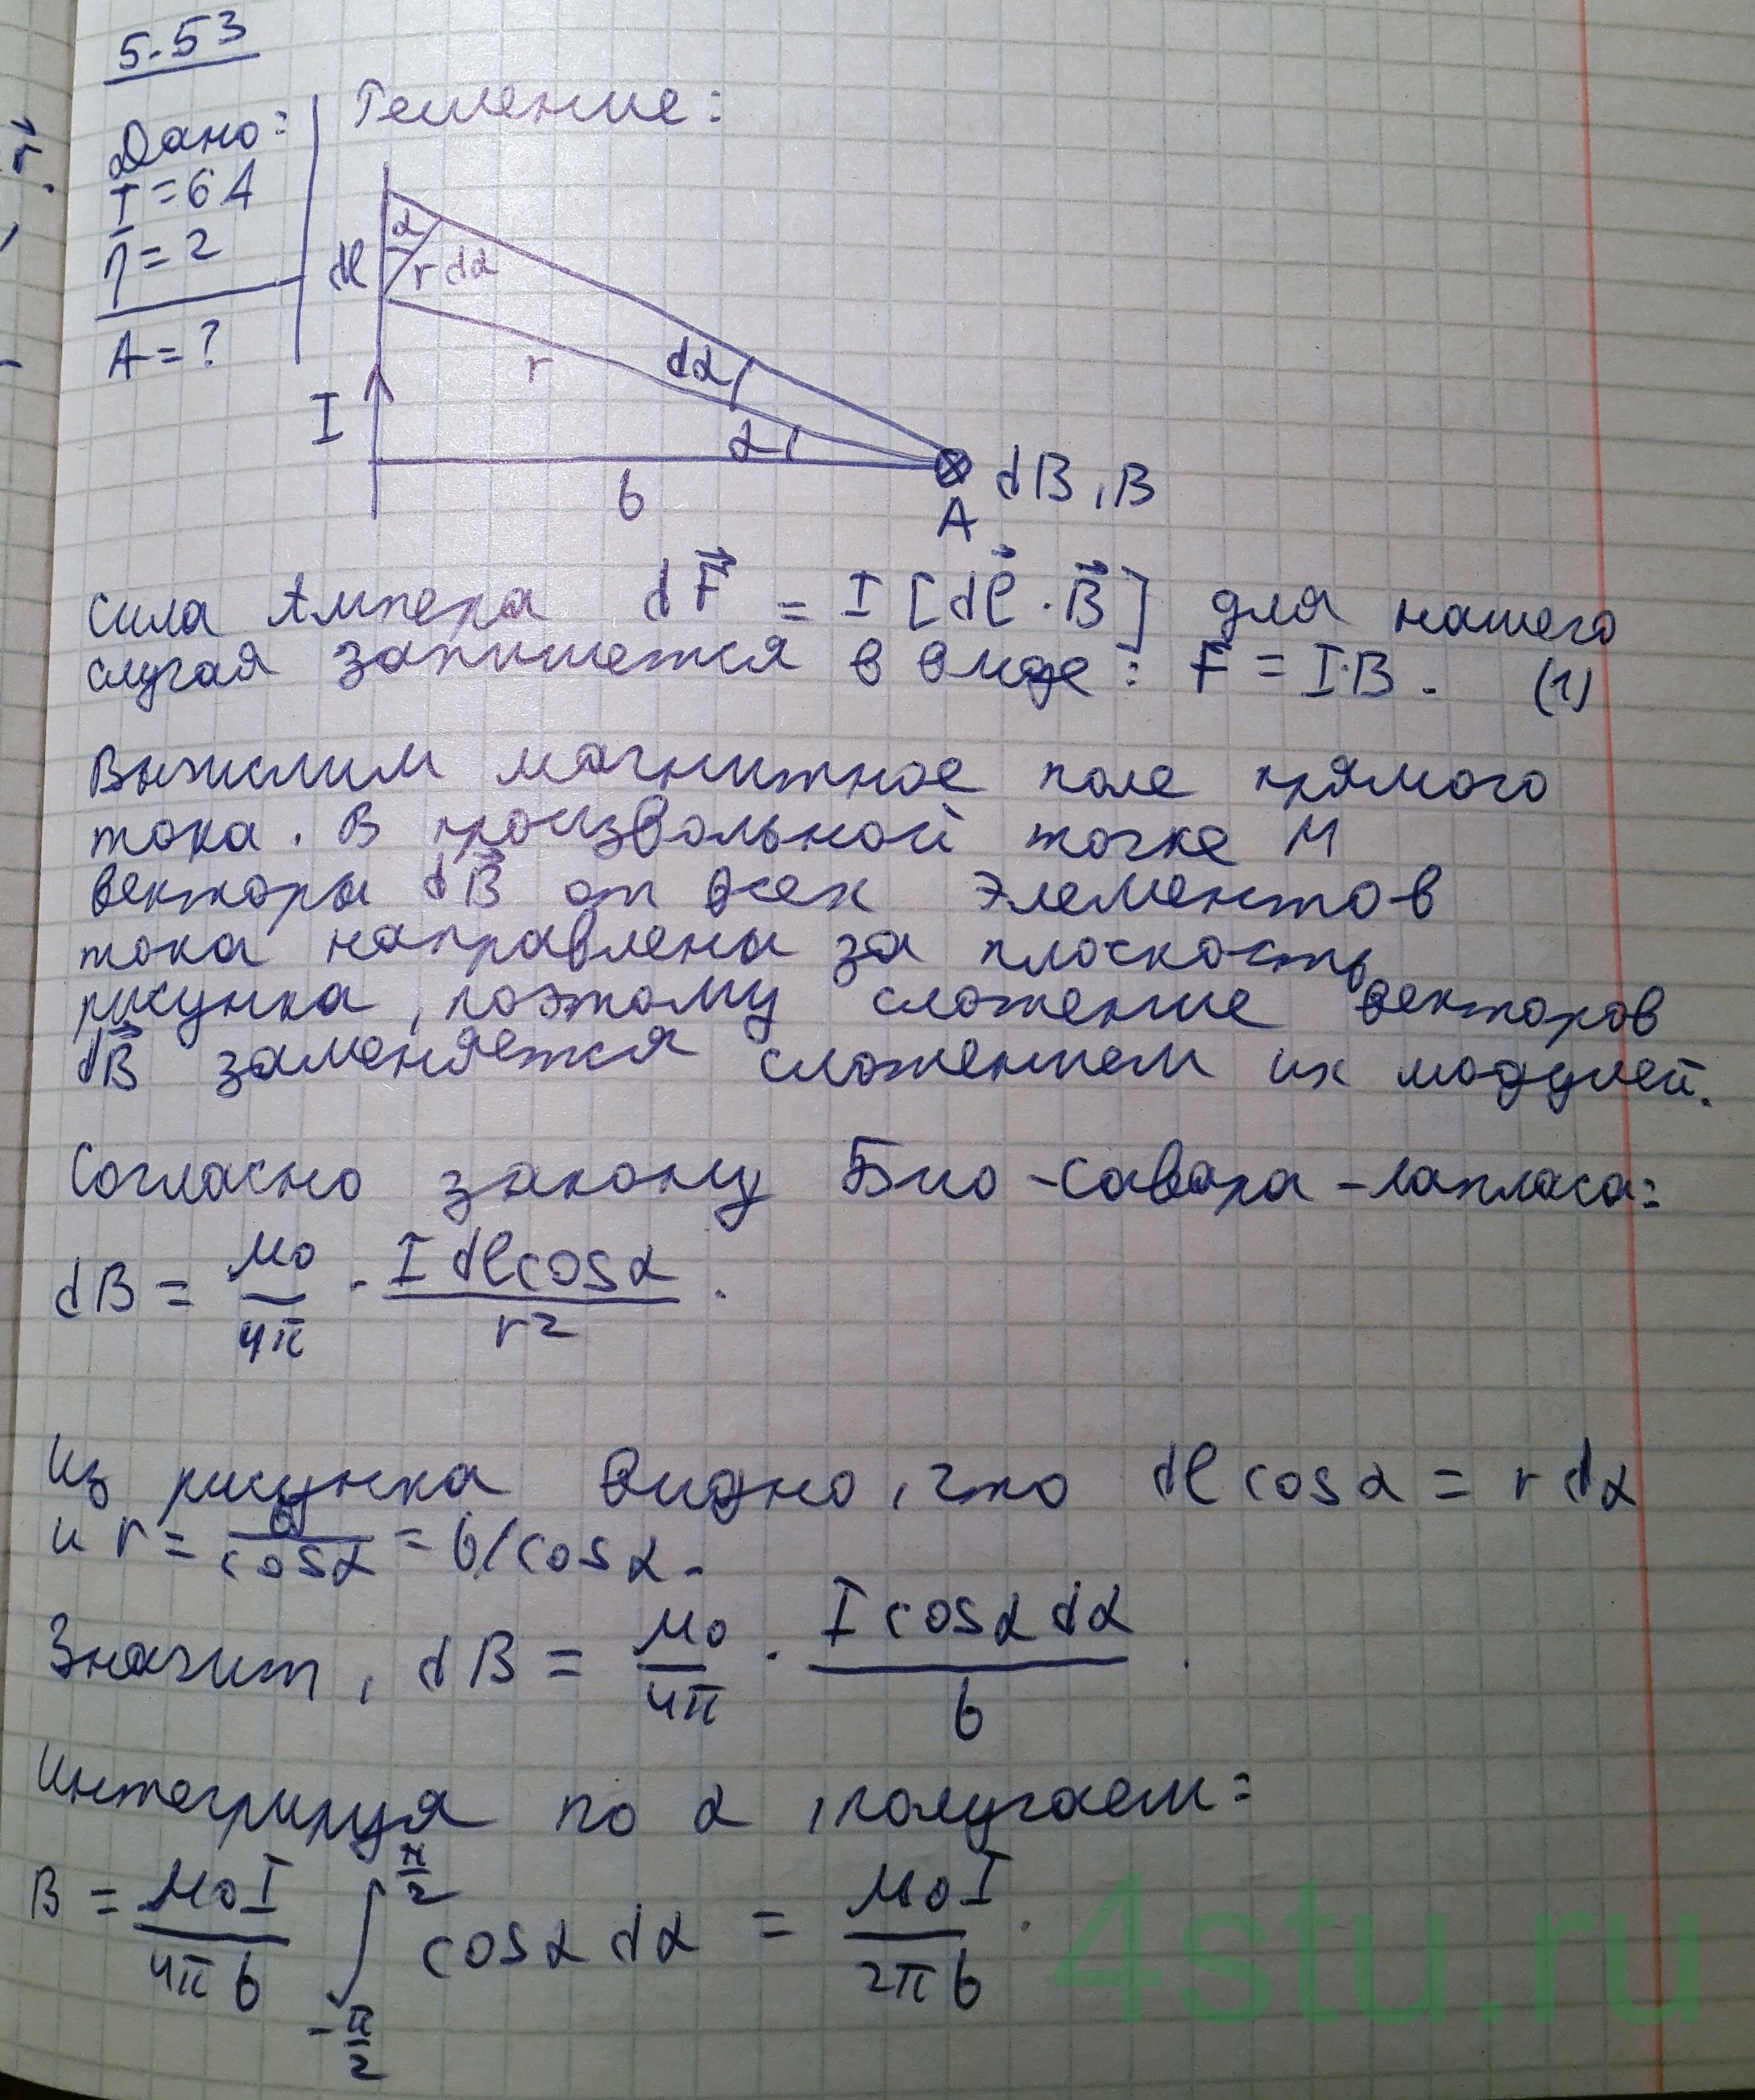 5.53
Дано:
I = 6 A
η = 2
A = ?
Решение:
α
dl
r dα
r
dα
α
I
b
dB, B
A
Сила Ампера dF⃗ = I [dl⃗ · B⃗] для нашего
случая запишется в виде: F = I·B. (1)
Вычислим магнитное поле прямого
тока. В произвольной точке М
векторы dB⃗ от всех элементов
тока направлены за плоскость
рисунка, поэтому сложение векторов
dB⃗ заменяется сложением их модулей.
Согласно закону Био-Савара-Лапласа:
dB = μ₀/4π · I dl cosα / r² .
Из рисунка видно, что dl cosα = r dα
и r = b/cosα = b/cosα.
Значит, dB = μ₀/4π · I cosα dα / b .
Интегрируя по α, получаем:
B = μ₀I/4πb ∫_{-π/2}^{π/2} cosα dα = μ₀I/2πb .
4stu.ru